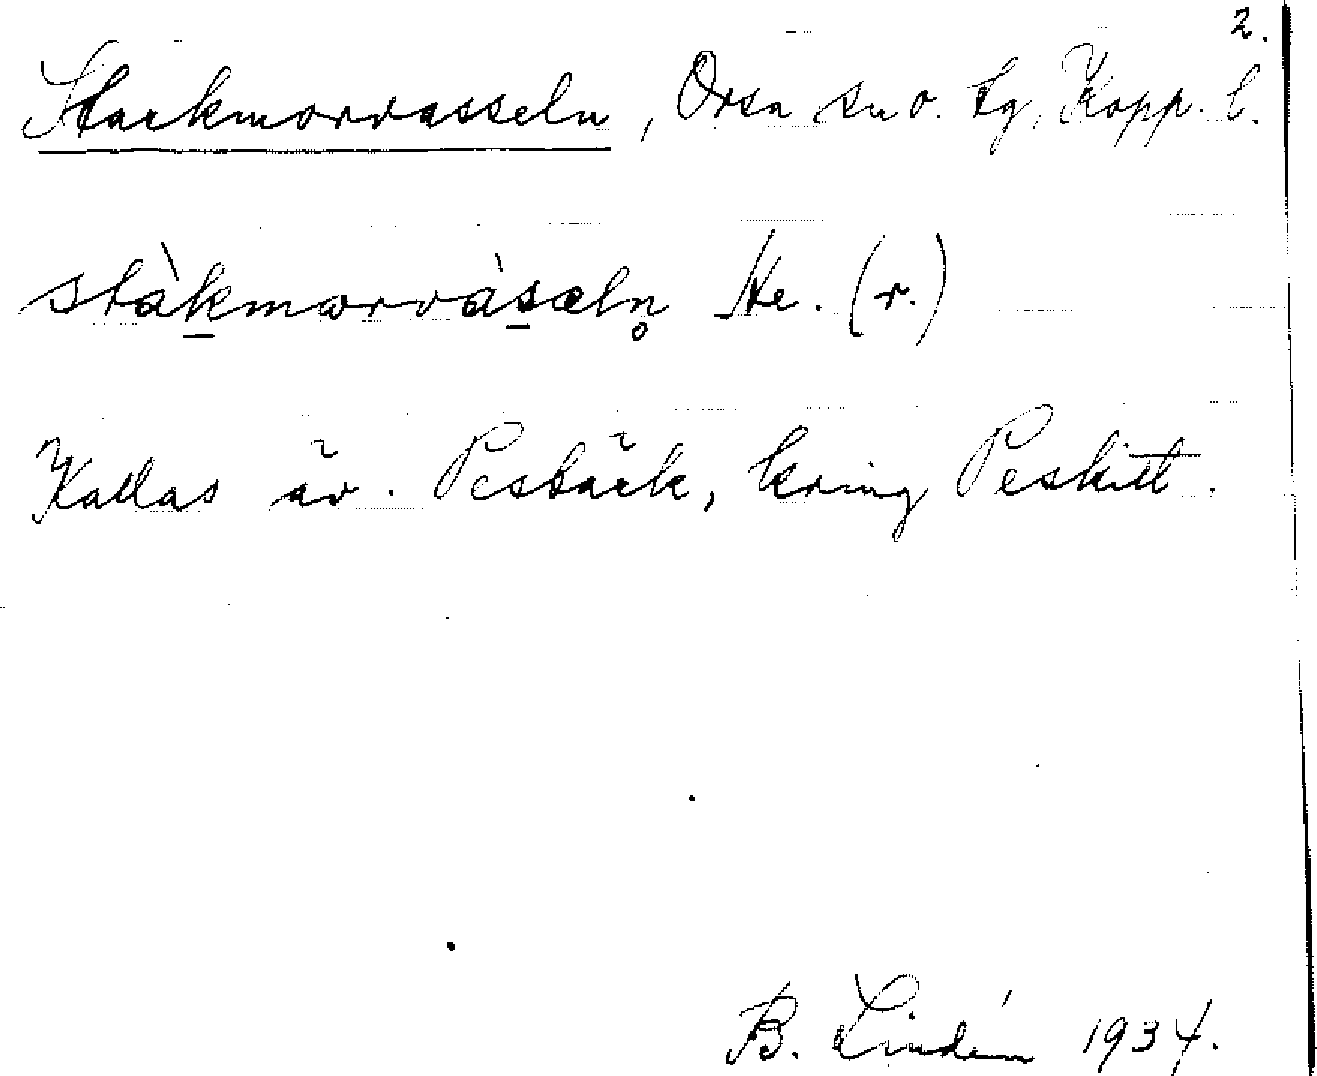 2.
Stackmorvasseln, Orsa sn o. tg, Kopp. l.
stàkmorvàsæln̥ He. (r.)
Kallas äv. Pesbäck, kring Peskitt.
B. Lindén 1934.